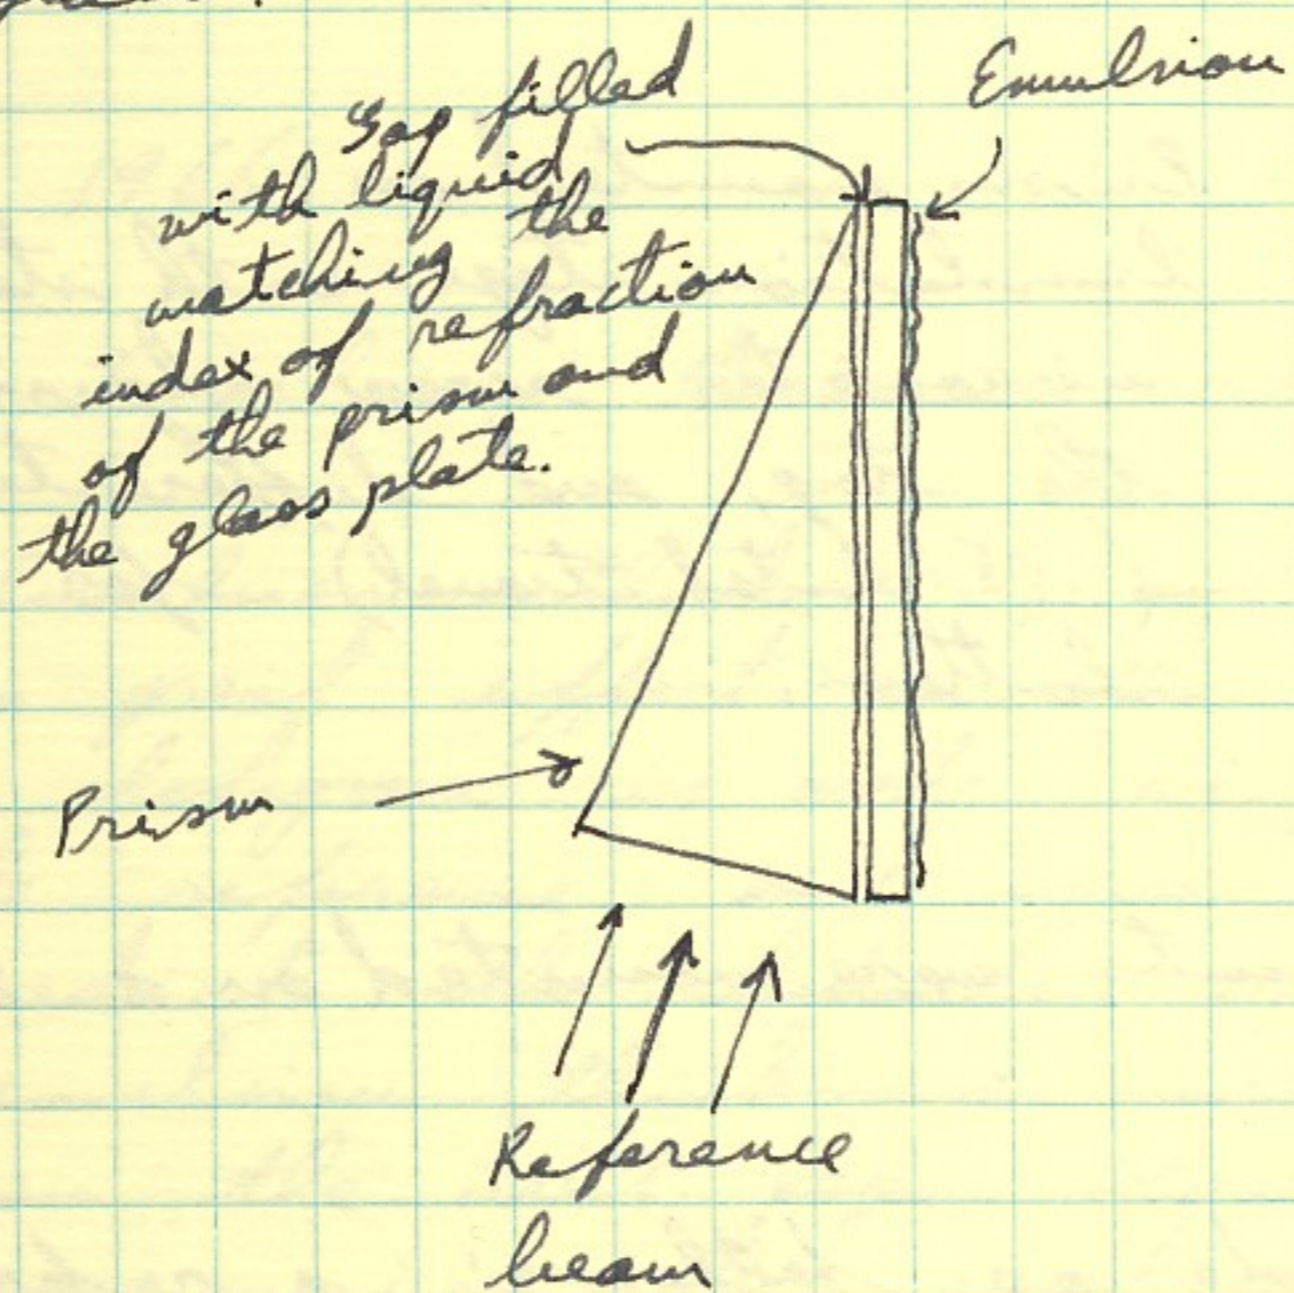 Gap filled
with liquid
matching the
index of refraction
of the prism and
the glass plate.
Emulsion
Prism
Reference
beam